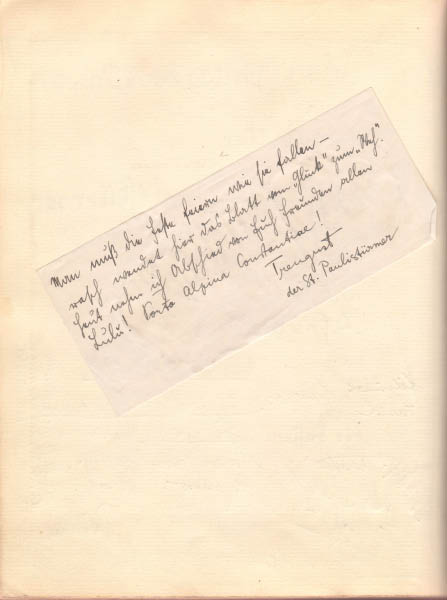 Man muß die Feste feiern wie sie fallen –
rasch wendet hier das Blatt vom „Glück" zum „Weh".
Heut nehm ich Abschied von Euch Freunden allen
Lulu! Porta Alpina Constantiae!
Trengust
der St. Paulistürmer